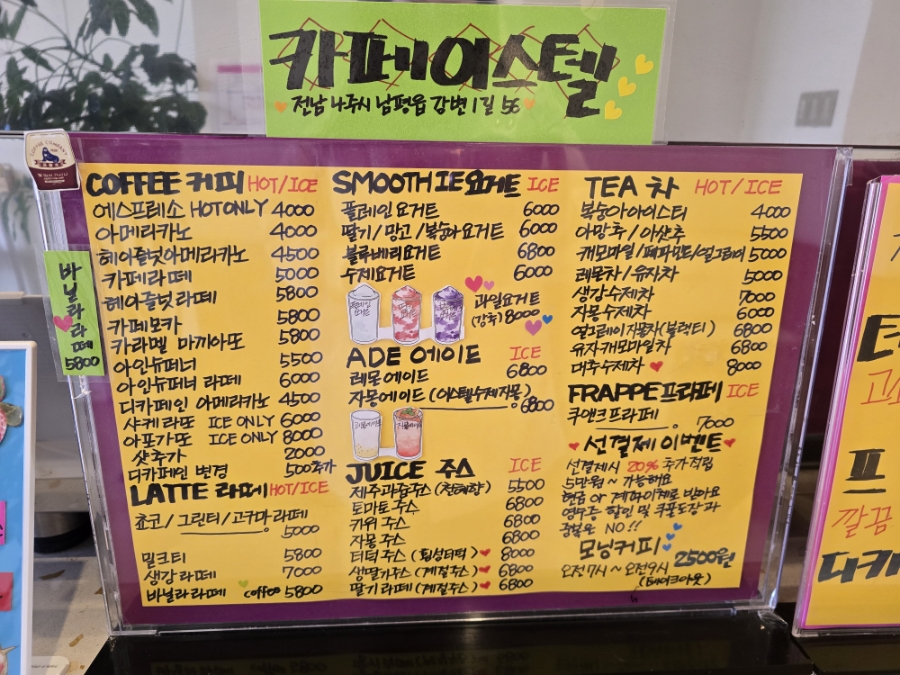 카페이스텔
전남 나주시 남평읍 강변1길 56
COFFEE 커피 HOT/ICE
에스프레소 HOT ONLY 4000
아메리카노 4000
헤이즐넛아메리카노 4500
카페라떼 5000
헤이즐넛라떼 5800
카페모카 5800
카라멜 마끼아또 5800
아인슈페너 5500
아인슈페너 라떼 6000
디카페인 아메리카노 4500
샤케라또 ICE ONLY 6000
아포가또 ICE ONLY 8000
샷추가 2000
디카페인 변경 500추가
LATTE 라떼 HOT/ICE
쵸코/그린티/고구마라떼
5000
밀크티 5800
생강라떼 7000
바닐라라떼 coffee 5800
바닐라라떼
5800
SMOOTHIE 요거트 ICE
플레인요거트 6000
딸기/망고/복숭아요거트 6000
블루베리요거트 6800
수제요거트 6000
과일요거트
(강추) 8000
ADE 에이드 ICE
레몬에이드 6800
자몽에이드 (이스텔수제자몽)
6800
JUICE 주스 ICE
제주과즙주스 (천혜향) 5500
토마토주스 6800
키위주스 6800
자몽주스 6800
터턱주스 (팀성터턱) 8000
생딸기주스 (계절주스) 6800
딸기라떼 (계절주스) 6800
TEA 차 HOT/ICE
복숭아아이스티 4000
아망추/아샷추 5500
캐모마일/페퍼민트/얼그레이 5000
레몬차/유자차 5000
생강수제차 7000
자몽수제차 6000
얼그레이자몽차(블랙티) 6800
유자캐모마일차 6800
대추수제차 8000
FRAPPE 프라페 ICE
쿠앤크프라페 7000
선결제이벤트
선결제시 20% 추가적립
5만원~ 가능해요
현금 or 계좌이체로 받아요
영수증 할인 및 쿠폰도장과
중복은 NO!!
모닝커피 2500원
오전7시~오전9시
(테이크아웃)